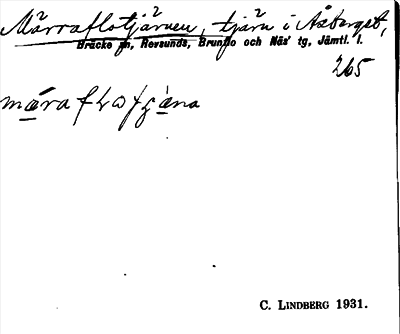 Märraflotjärnen, tjärn i Åsberget,
Bräcke sn, Revsunds, Brunflo och Näs' tg, Jämtl. l.
265
C. LINDBERG 1931.